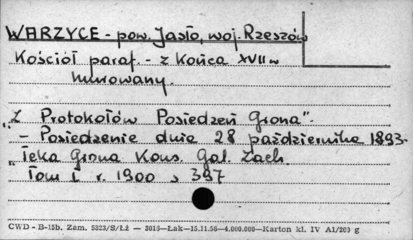 WARZYCE - pow. Jasło, woj. Rzeszów
Kościół paraf. - z końca XVII w
murowany.
"Z Protokołów Posiedzeń Grona".
- Posiedzenie dnia 28 października 1893.
"Teka Grona Kons. Gal. Zach.
Tom I r. 1900 s 397
CWD - B-15b. Zam. 5323/S/Łż — 3016—Łak—15.11.56—4.000.000—Karton kl. IV A1/203 g